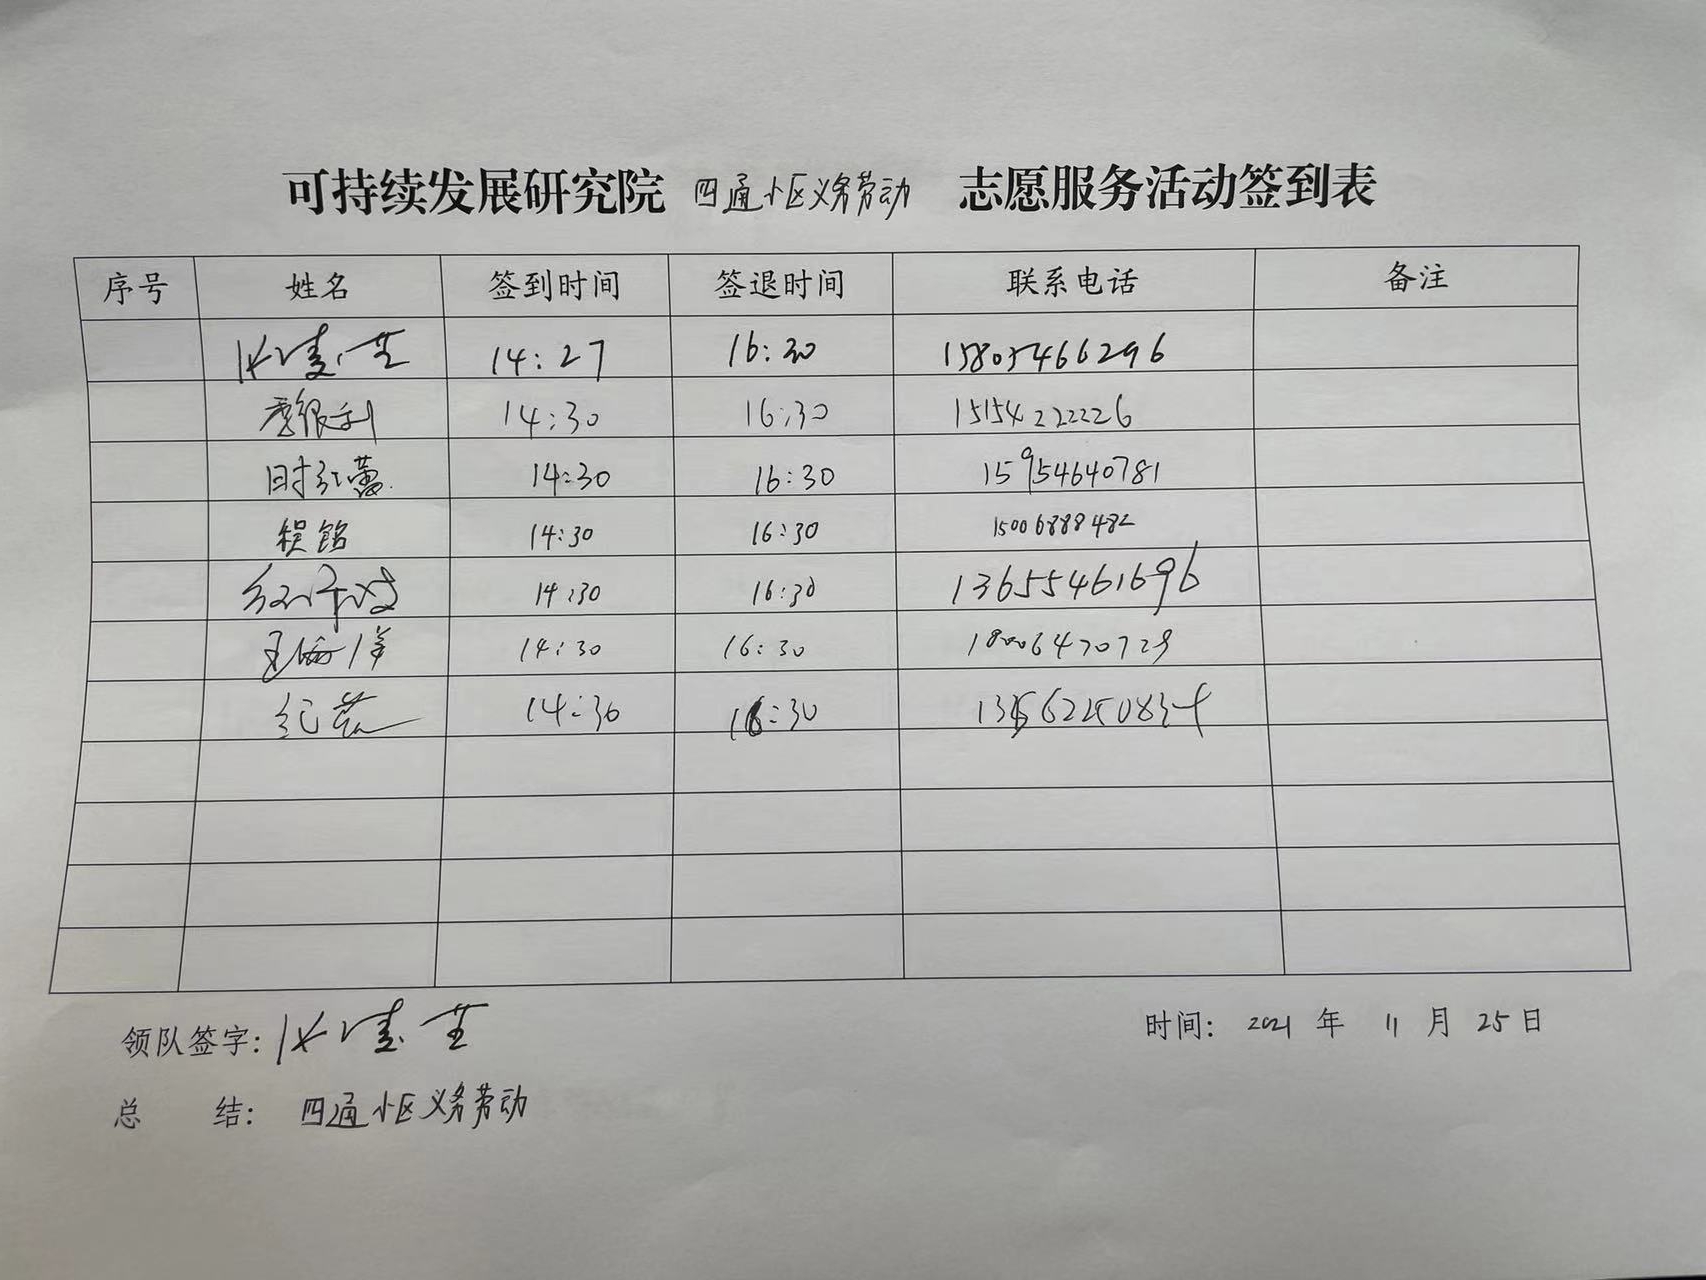 可持续发展研究院 四通小区义务劳动 志愿服务活动签到表
序号 姓名 签到时间 签退时间 联系电话 备注
14:27 16:30 15805466296
14:30 16:30 15154222226
时红蕾 14:30 16:30 15954640781
程铭 14:30 16:30 15006888482
14:30 16:30 13655461696
14:30 16:30 18006470729
纪芸 14:30 16:30
领队签字: 时间: 2021 年 11 月 25 日
总 结: 四通小区义务劳动